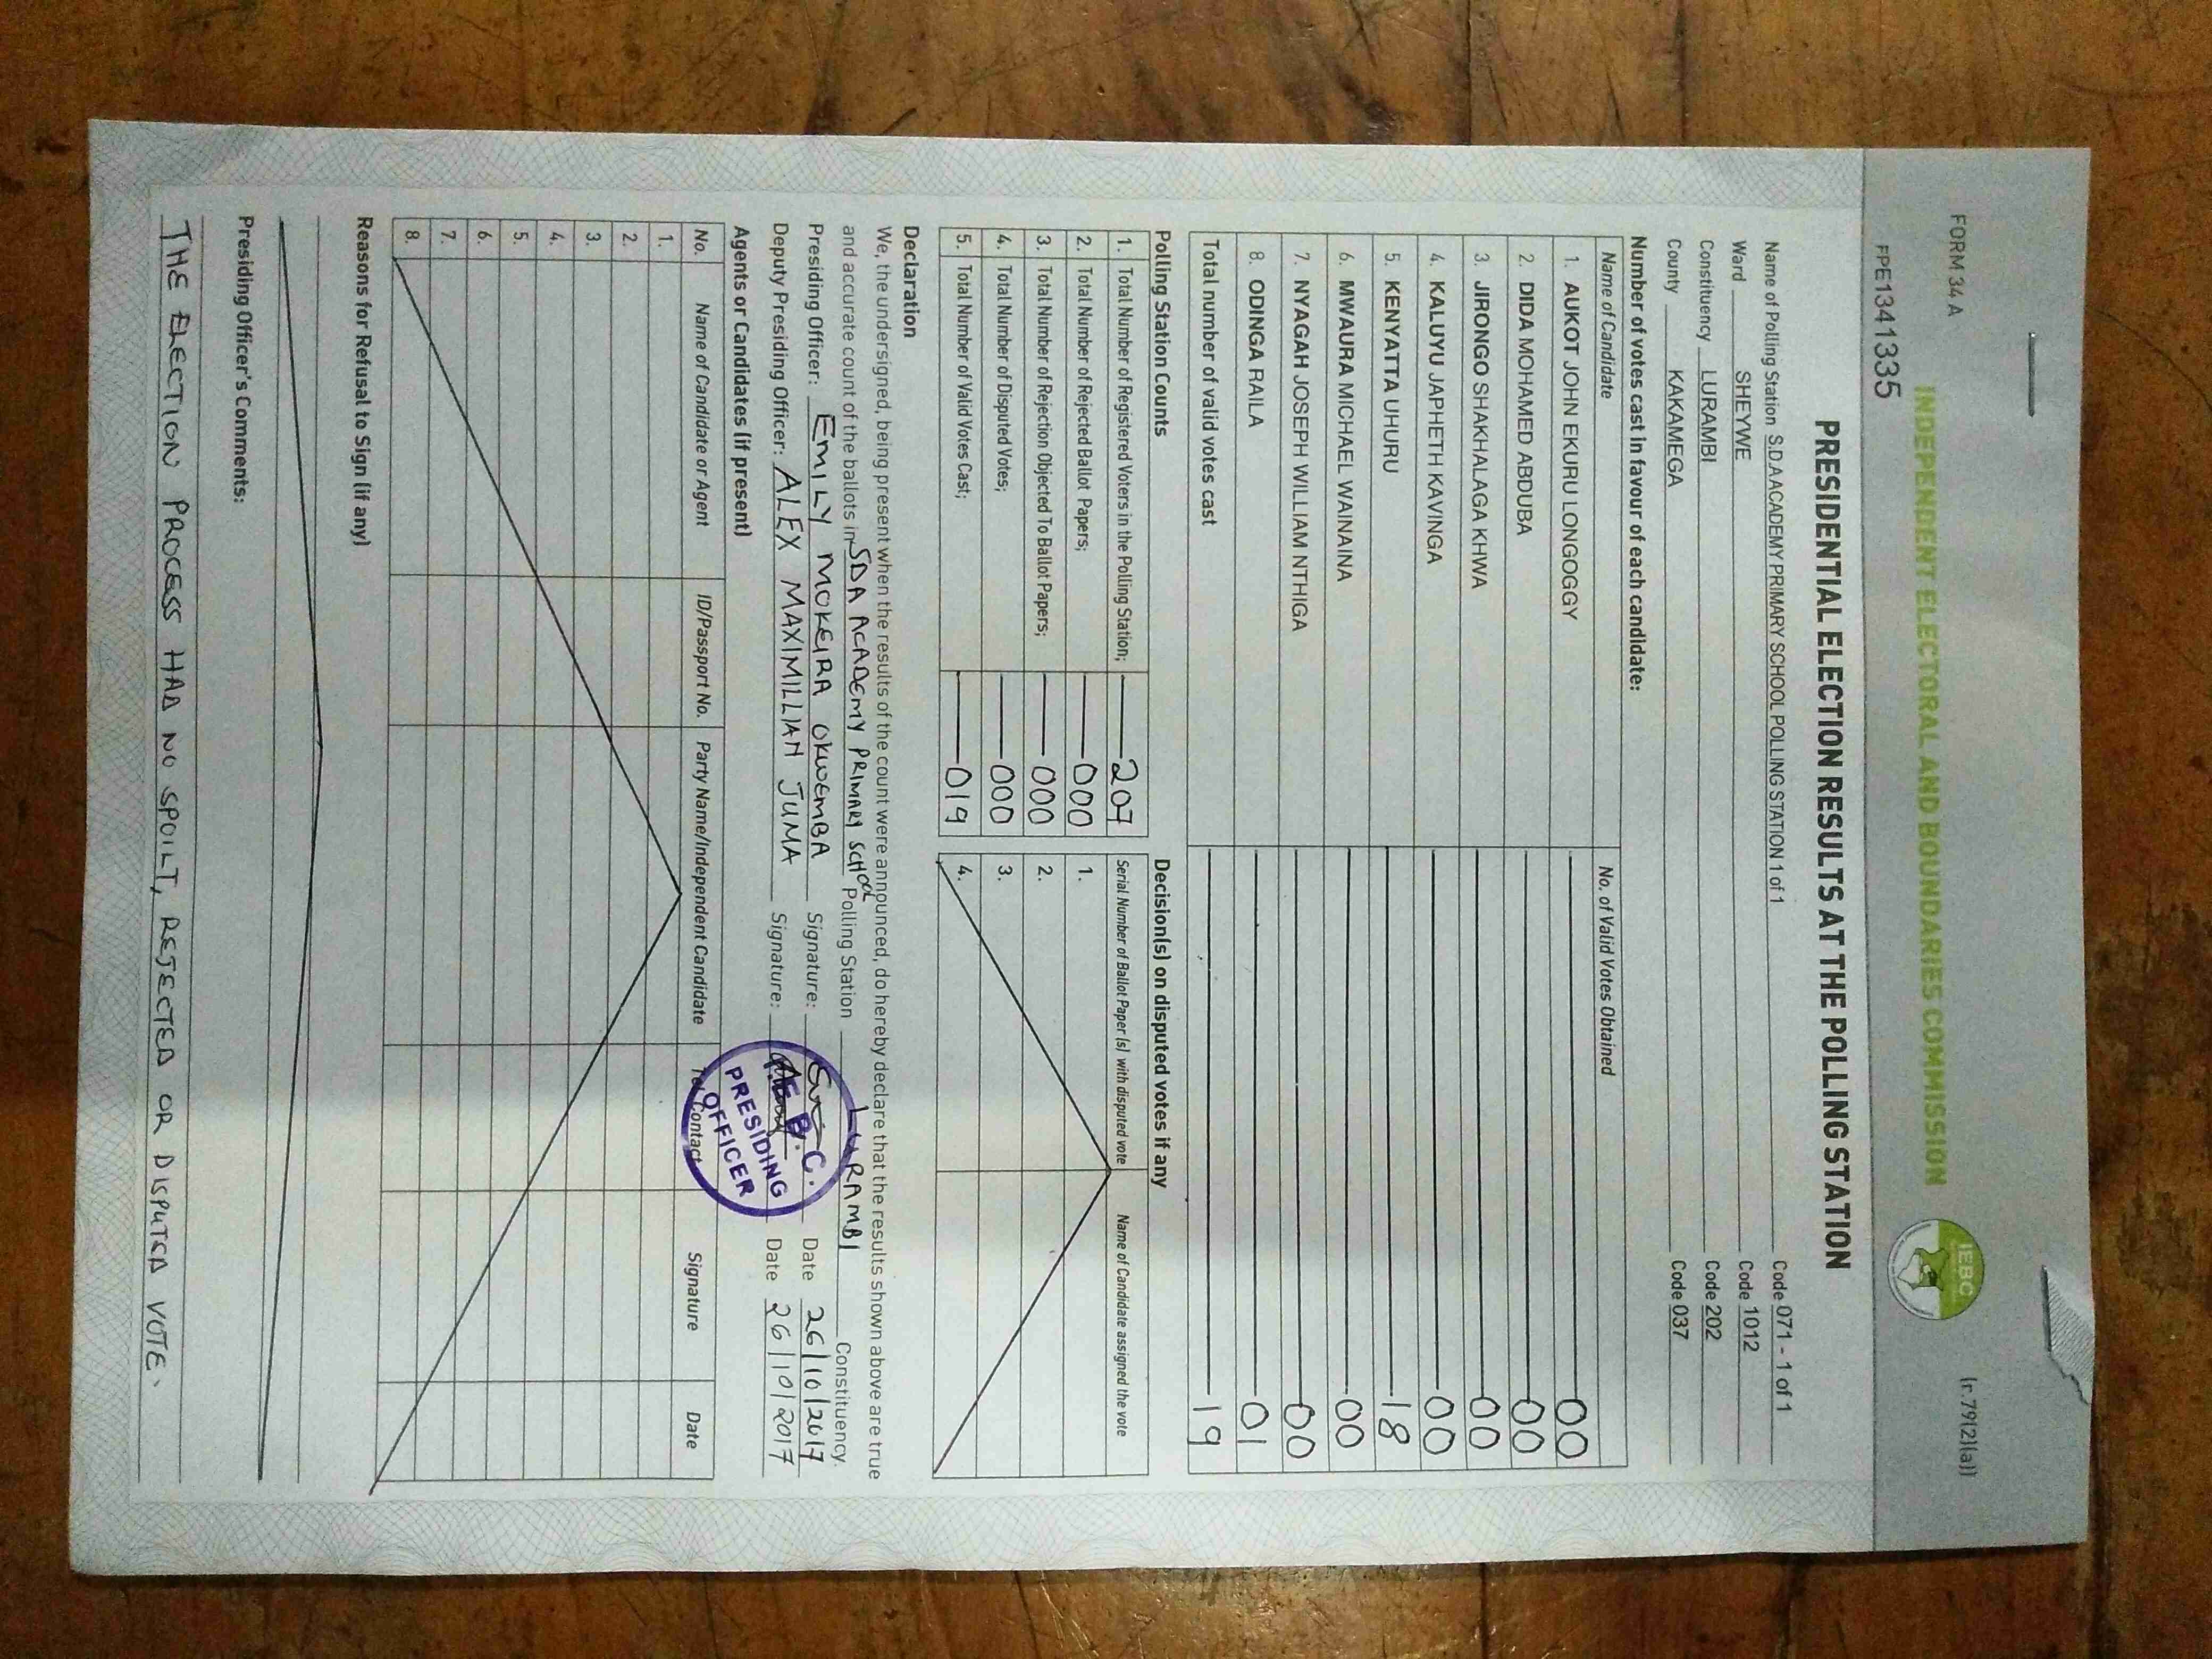 FORM 34 A
(r.79(2)(a))
INDEPENDENT ELECTORAL AND BOUNDARIES COMMISSION
IEBC
PE1341335
PRESIDENTIAL ELECTION RESULTS AT THE POLLING STATION
Name of Polling Station S.D.A ACADEMY PRIMARY SCHOOL POLLING STATION 1 of 1 Code 071 - 1 of 1
Ward SHEYWE Code 1012
Constituency LURAMBI Code 202
County KAKAMEGA Code 037
Number of votes cast in favour of each candidate:
Name of Candidate No. of Valid Votes Obtained
1. AUKOT JOHN EKURU LONGOGGY 00
2. DIDA MOHAMED ABDUBA 00
3. JIRONGO SHAKHALAGA KHWA 00
4. KALUYU JAPHETH KAVINGA 00
5. KENYATTA UHURU 18
6. MWAURA MICHAEL WAINAINA 00
7. NYAGAH JOSEPH WILLIAM NTHIGA 00
8. ODINGA RAILA 01
Total number of valid votes cast 19
Polling Station Counts
1. Total Number of Registered Voters in the Polling Station; 207
2. Total Number of Rejected Ballot Papers; 000
3. Total Number of Rejection Objected To Ballot Papers; 000
4. Total Number of Disputed Votes; 000
5. Total Number of Valid Votes Cast; 019
Decision(s) on disputed votes if any
Serial Number of Ballot Paper (s) with disputed vote Name of Candidate assigned the vote
1.
2.
3.
4.
Declaration
We, the undersigned, being present when the results of the count were announced, do hereby declare that the results shown above are true
and accurate count of the ballots in SDA ACADEMY PRIMARY SCHOOL Polling Station LURAMBI Constituency.
Presiding Officer: EMILY MOKEIRA OKWEMBA Signature: Date 26/10/2017
Deputy Presiding Officer: ALEX MAXIMILLIAN JUMA Signature: Date 26/10/2017
I.E.B.C.
PRESIDING
OFFICER
Agents or Candidates (if present)
No. Name of Candidate or Agent ID/Passport No. Party Name/Independent Candidate Tel Contact Signature Date
1.
2.
3.
4.
5.
6.
7.
8.
Reasons for Refusal to Sign (if any)
Presiding Officer's Comments:
THE ELECTION PROCESS HAD NO SPOILT, REJECTED OR DISPUTED VOTE.